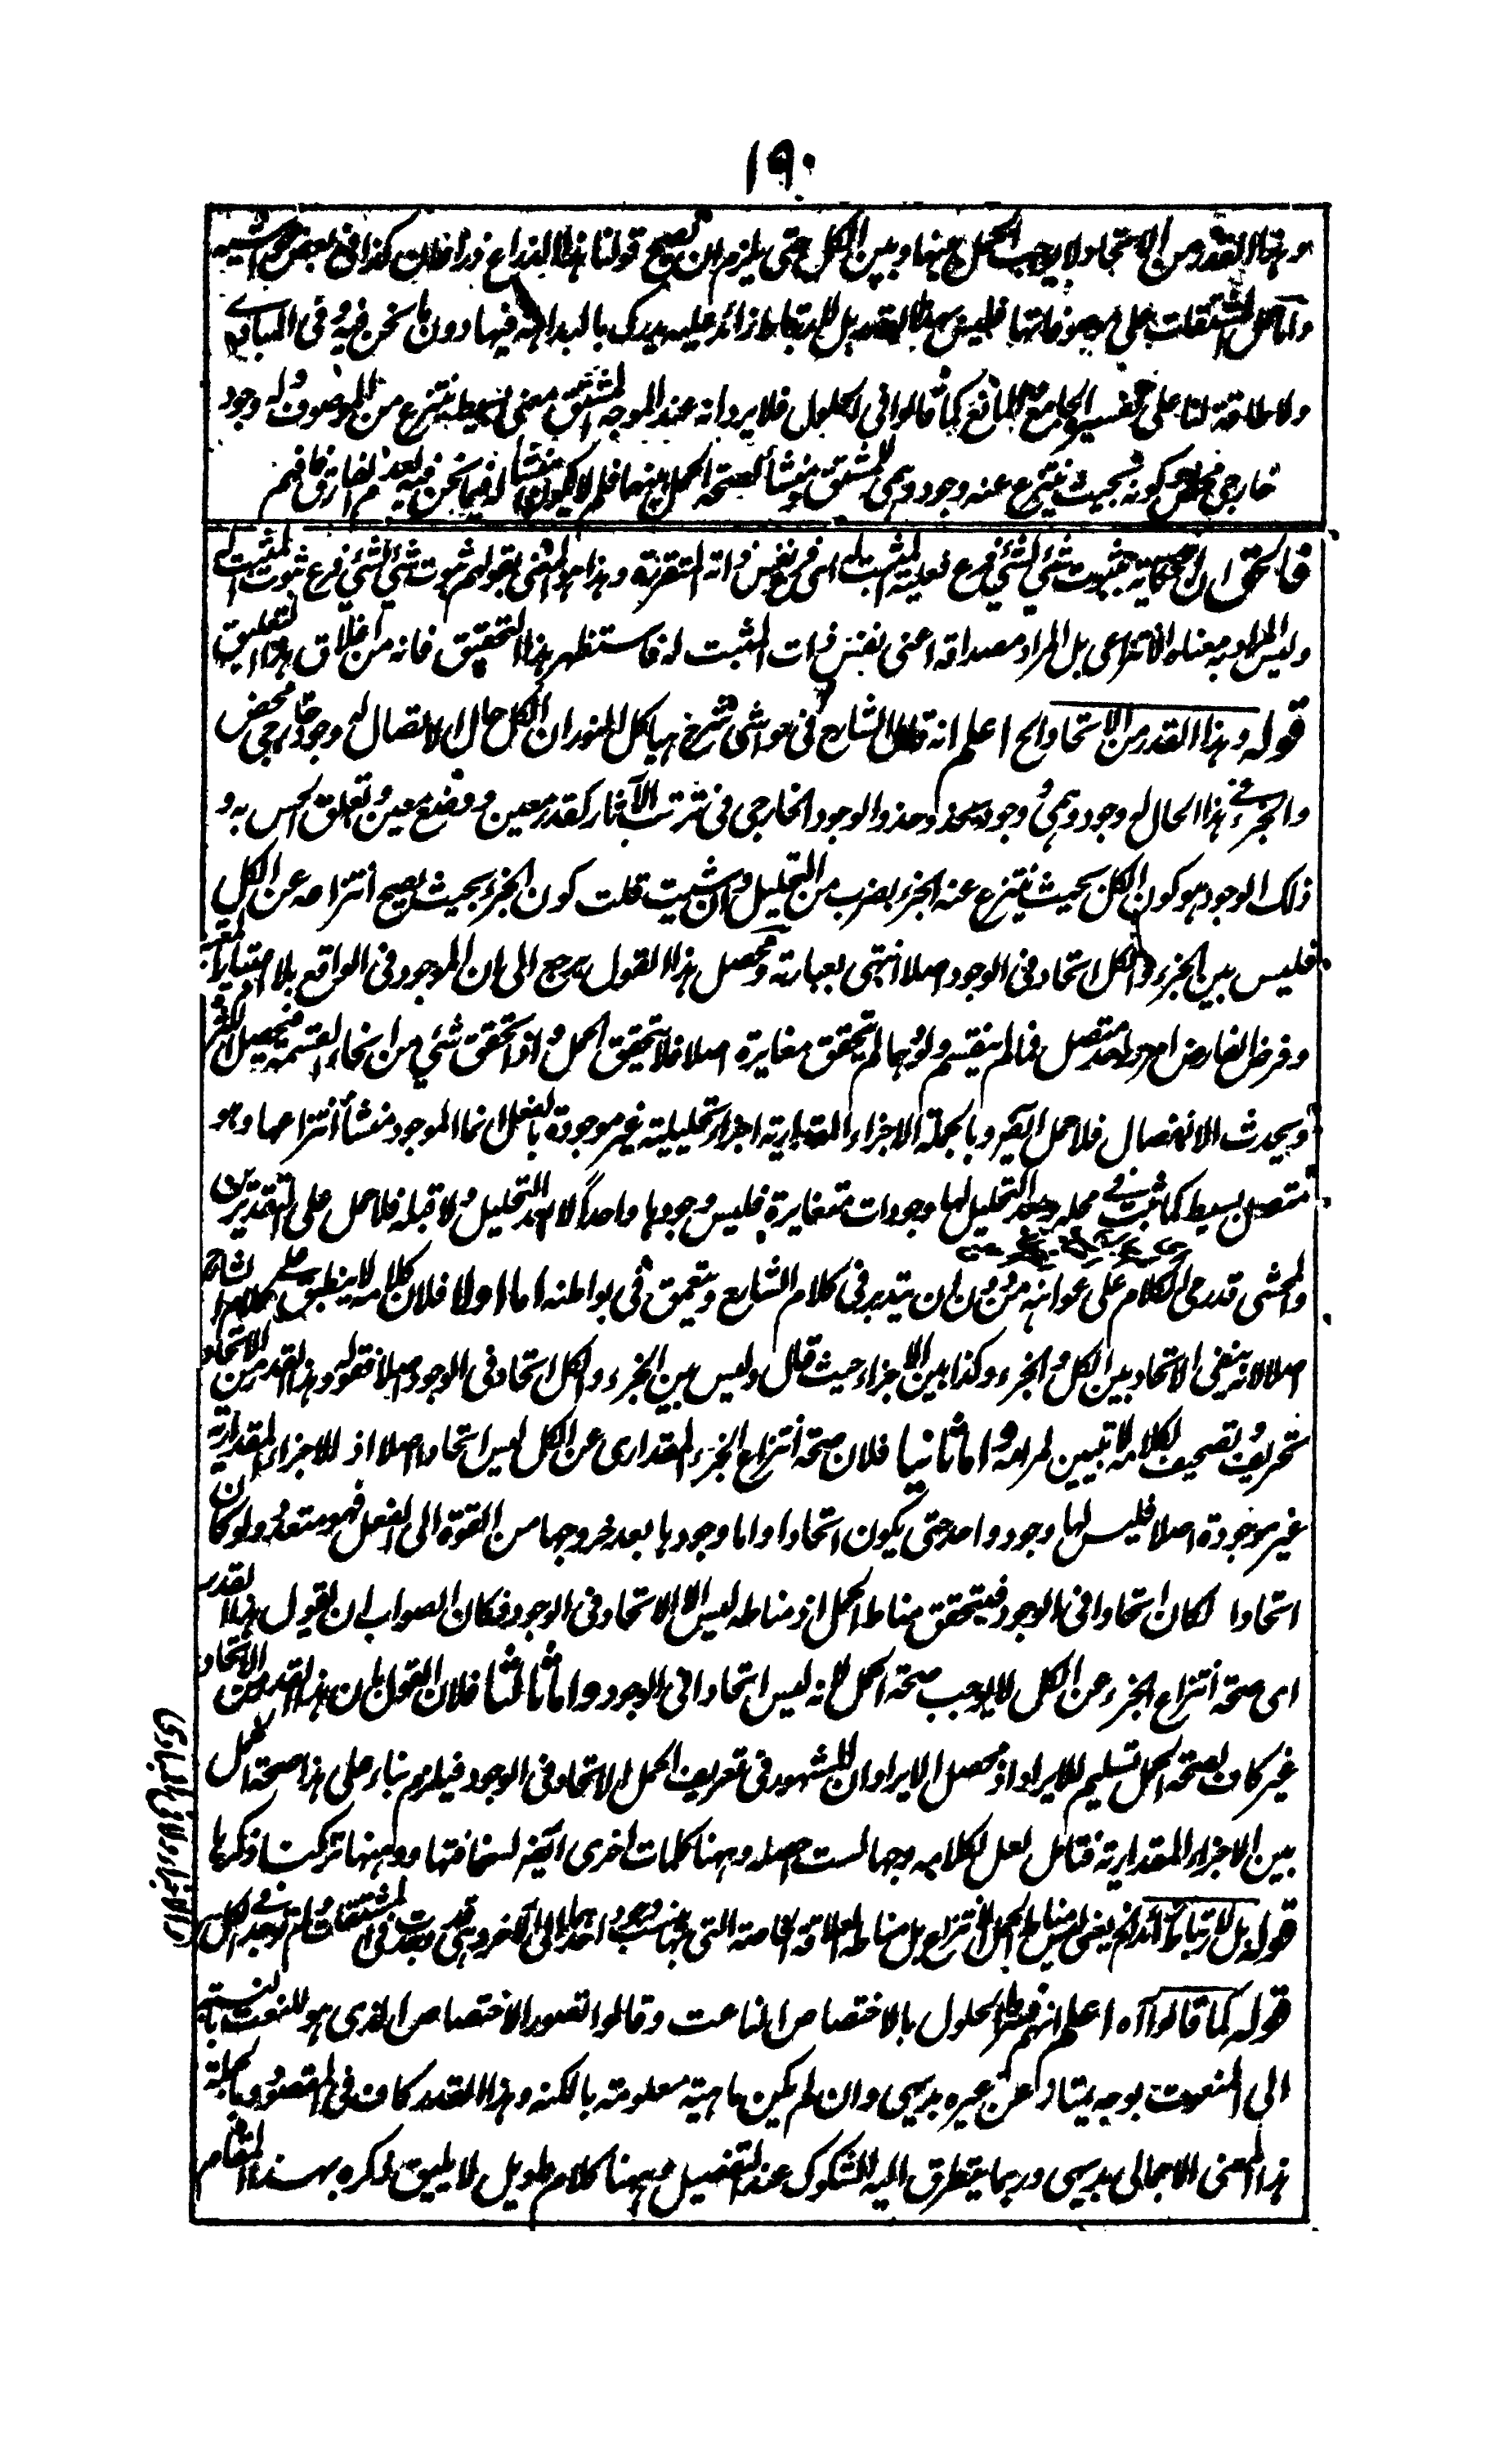 ١٩٠
وهذا القدر من الاتحاد لا يوجب الحمل بينها وبين الكل حتى يلزم ان يصح قولنا هذا الذراع ذراعان كذا في بعض حواشيه
واما حمل المشتقات على موصوفاتها فليس بهذا القدر بل لارتباط زائد عليه يدرك بالبداهة فيها دون ما نحن فيه وفي المبادي
ولا طاقة لنا على تفسيره الجامع المانع كما قالوا في الحلول فلا يرد انه عند الموجه المشتق معنى بسيط ينتزع من الموصوف له وجود
خارجي محض كونه بحيث ينتزع عنه وجود وهمي للمشتق ومنشأ لصحة الحمل بينهما فلم لا يكون منشأ له فيما نحن فيه لعدم الفارق فافهم
فالحق ان الحكاية بثبوت شيء لشيء فرع فعلية المثبت له اى فرع نفس ذاته المتقررة وهذا هو المعنى بقولهم ثبوت شيء لشيء فرع ثبوت المثبت له
وليس المراد به معناه الانتزاعي بل المراد مصداقه اعنى نفس ذات المثبت له فاستظهر بهذا التحقيق فانه من اغلاق هذا التعليق
قوله وهذا القدر من الاتحاد الخ اعلم انه قال الشارح في حواشى شرح هياكل النور ان الكل حال الاتصال له وجود خارجى محض
والجزء في هذا الحال له وجود وهمي وجود يحذو حذو الوجود الخارجي في ترتب الآثار كقدر معين ووضع معين وتعلق الحس به و
ذلك الوجود هو كون الكل بحيث ينتزع عنه الجزء بضرب من التحليل وان شيت قلت كون الجزء بحيث يصح انتزاعه عن الكل
فليس بين الجزء والكل اتحاد في الوجود اصلا انتهى بعبارته ومحصل هذا القول يرجع الى ان الموجود في الواقع بلا اعتبار المعتبر
وفرض الفارض امر واحد متصل فما لم ينقسم ولو وهما لم يتحقق مغايرة اصلا فلا يتحقق الحمل واذا تحقق شيء من انحاء القسمة فيحصل الكثرة
ويحدث الانفصال فلا حمل ايضا وبالجملة الاجزاء المقدارية اجزاء تحليلية غير موجودة بالفعل انما الموجود منشأ انتزاعها وهو
متصل بسيط كما ثبت في محله وبعد التحليل لها وجودات متغايرة فليس وجودها واحداً لا بعد التحليل ولا قبله فلا حمل على التقديرين
والمحشى قد رمى الكلام على عواهنه من دون ان يتدبر في كلام الشارح ويتعمق في بواطنه اما اولا فلان كلامه لا ينطبق على كلام الشارح
اصلا لانه ينفى الاتحاد بين الكل والجزء وكذا بين الاجزاء حيث قال وليس بين الجزء والكل اتحاد في الوجود اصلا فقوله وهذا القدر من الاتحاد
تحريف وتصحيف لكلامه لا تبيين لمرامه واما ثانيا فلان صحة انتزاع الجزء المقدارى عن الكل ليس اتحادا اصلا اذ الاجزاء المقدارية
غير موجودة اصلا فليس لها وجود واحد حتى يكون اتحادا واما وجودها بعد خروجها من القوة الى الفعل فهو متعدد ولو كان
اتحادا لكان اتحادا في الوجود فيتحقق مناط الحمل اذ مناطه ليس الا الاتحاد في الوجود فكان الصواب ان يقول هذا القدر
اى صحة انتزاع الجزء عن الكل لا يوجب صحة الحمل لانه ليس اتحادا في الوجود واما ثالثا فلان القول بان هذا القدر من الاتحاد
غير كاف لصحة الحمل تسليم للايراد اذ محصل الايراد ان المشهور في تعريف الحمل الاتحاد في الوجود فيلزم بناء على هذا صحة الحمل
بين الاجزاء المقدارية فتامل لعل لكلامه وجها لست احصله وههنا كلمات اخرى ايضا لسخافتها ووهنها تركت ذكرها
قوله بل لارتباط زائد الخ يعنى ليس مناط الحمل الانتزاع بل مناطه العلاقة الخاصة التي بها ينسب وجود احدهما الى الآخر وهي قد توجد في المشتقات ولم توجد في الكل
قوله كما قالوا آه اعلم انهم فسروا الحلول بالاختصاص الناعت وقالوا تصور الاختصاص الذى هو للنعت بالنسبة
الى المنعوت بوجه يمتاز عن غيره بديهى وان لم يكن ماهيته معلومة بالكنه وهذا القدر كاف في المقصود وبالجملة
هذا المعنى الاجمالى بديهى وربما يتطرق اليه الشكوك عند التفصيل وههنا كلام طويل لا يليق ذكره بهذا المقام